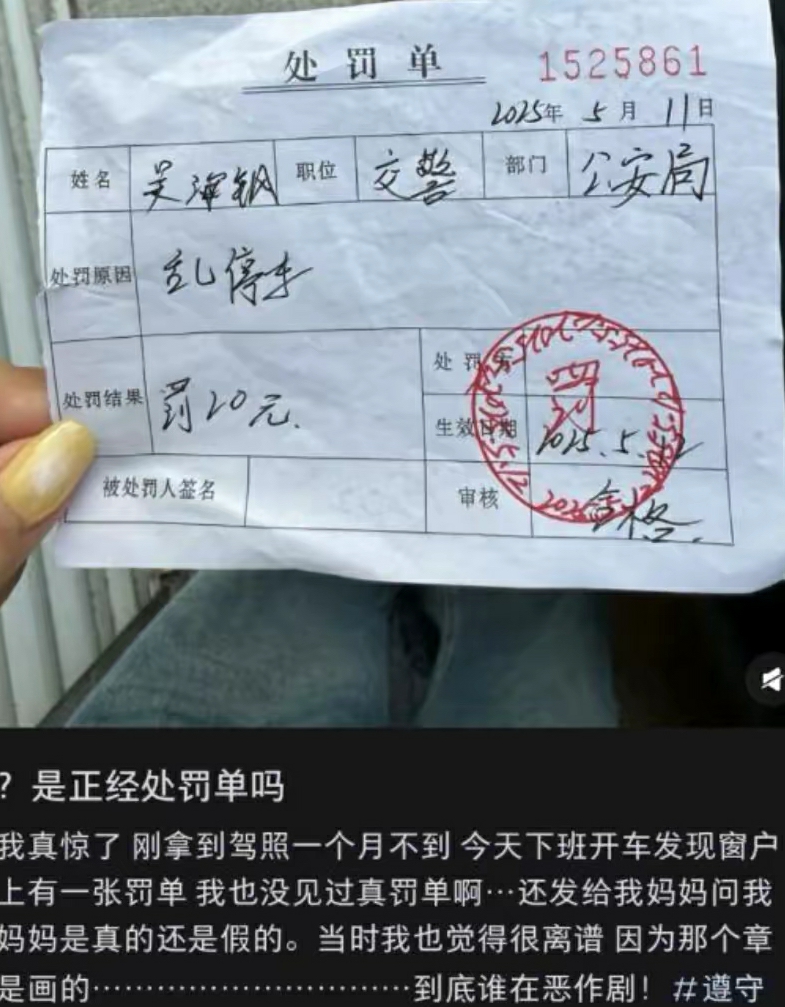 处罚单
1525861
2025年 5月 11日
姓名 吴海钢 职位 交警 部门 公安局
处罚原因 乱停车
处罚结果 罚20元.
处罚方 罚
生效日期 2025.5.12
被处罚人签名
审核 合格.
? 是正经处罚单吗
我真惊了 刚拿到驾照一个月不到 今天下班开车发现窗户
上有一张罚单 我也没见过真罚单啊…还发给我妈妈问我
妈妈是真的还是假的。当时我也觉得很离谱 因为那个章
是画的…………………………到底谁在恶作剧！#遵守